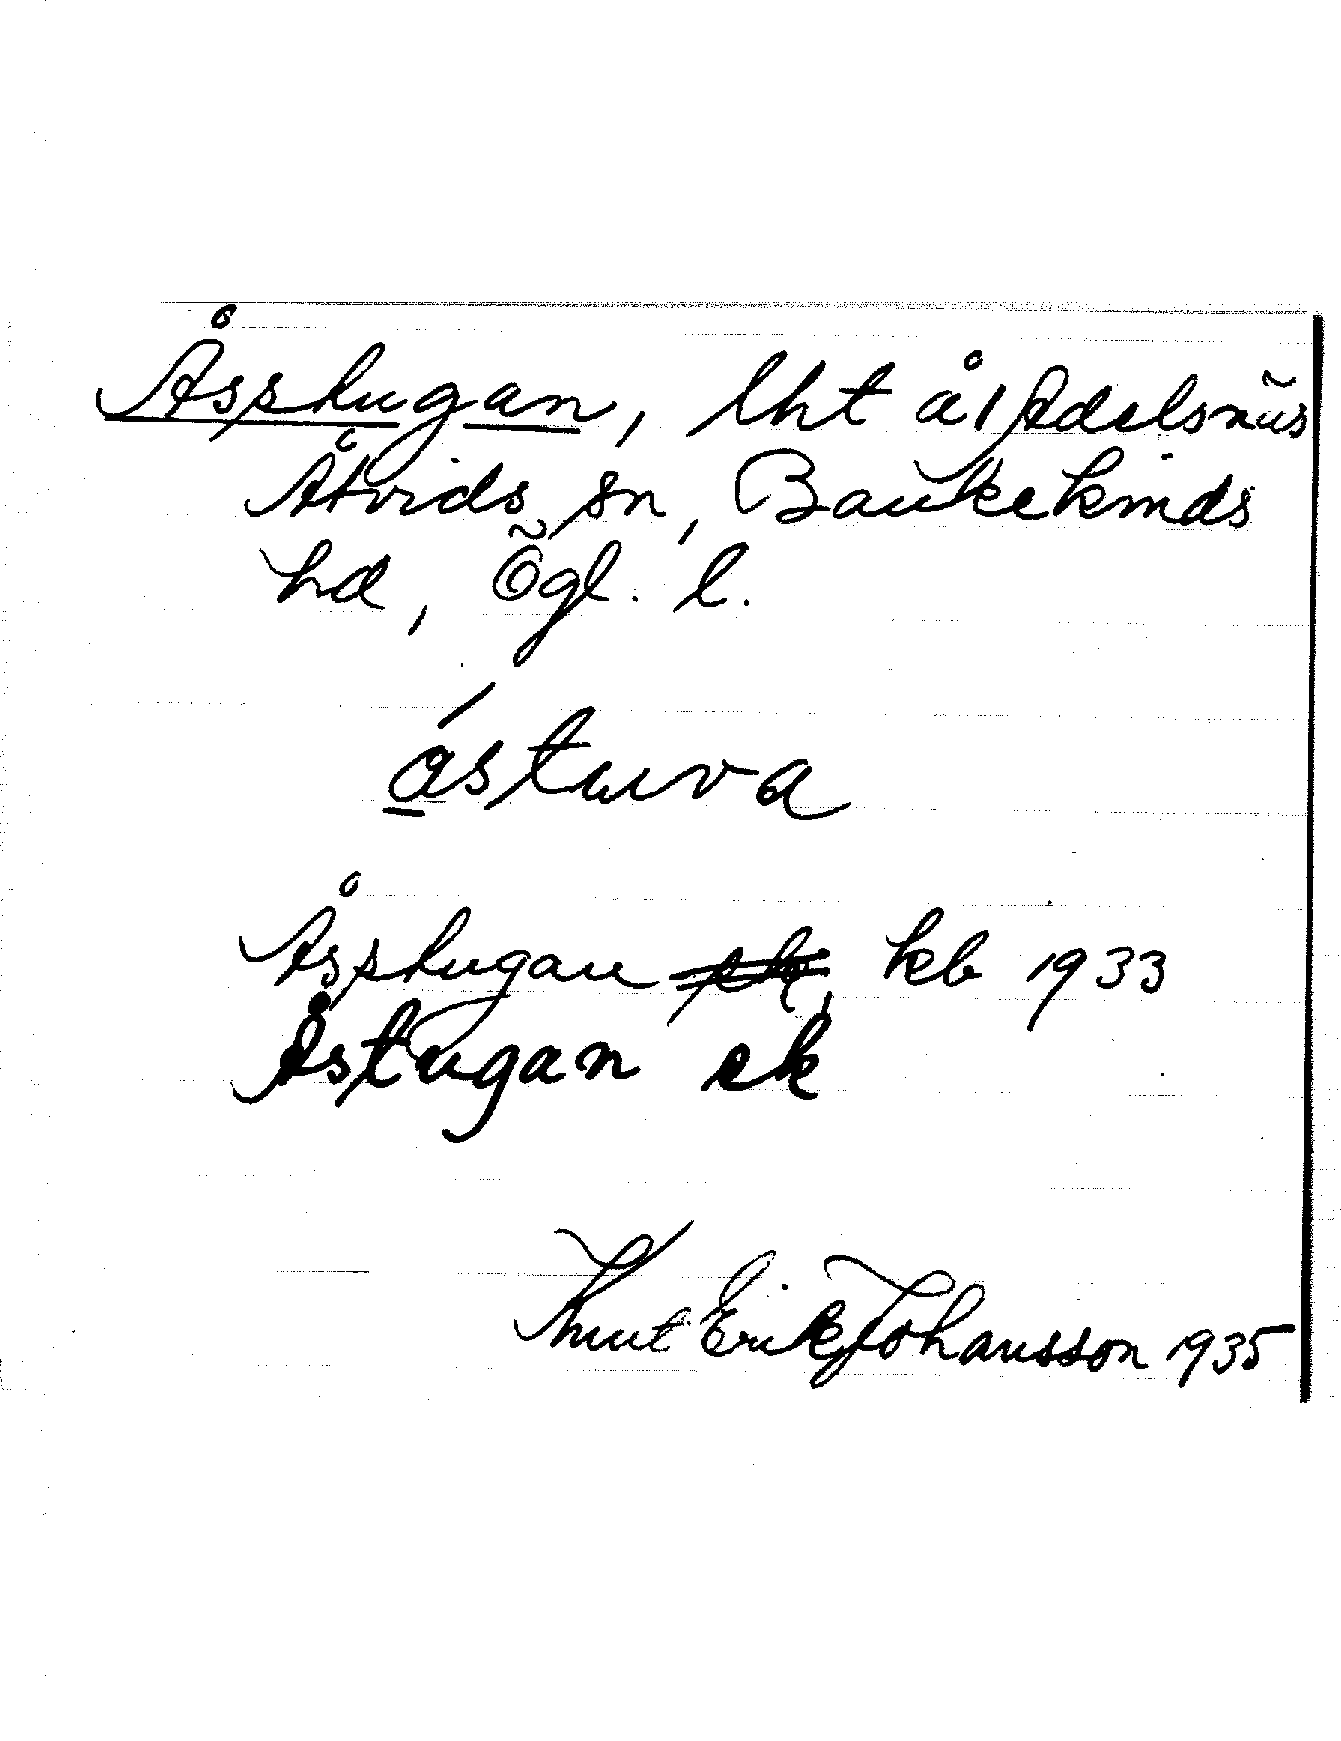 Åsstugan, lht å 1 Adelsnäs
Åtvids sn, Bankekinds
hd, Ögl. l.
ástuva
Åsstugan kb 1933
Åstugan ek
Knut Erik Johansson 1935